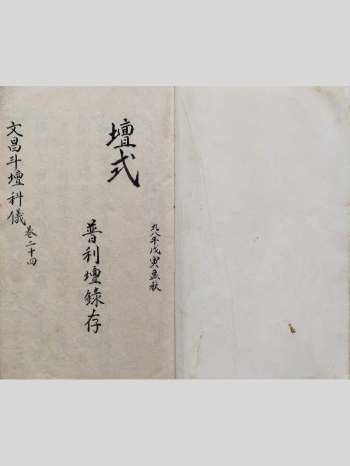 九八年戊寅孟秋
壇式
普利壇錄存
文昌斗壇科儀 卷二十四